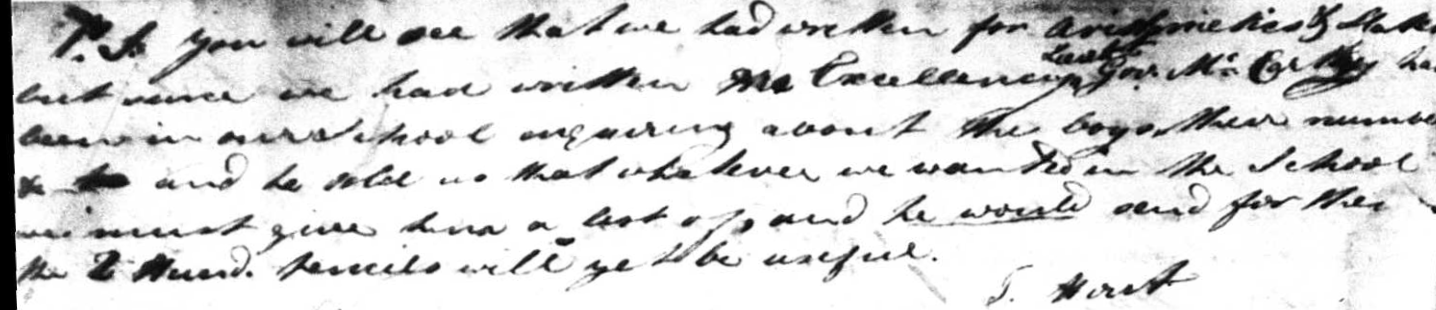 P.S. you will see that we had written for Arithmetics & Slates
but since we had written His Excellency Lieut. Gov. McCarthy has
been in our School enquiring about the boys, their number
& and he told us that whatever we wanted in the School
we must give him a list of, and he would send for them
the 2 Hund. pencils will yet be useful.
T. Hirst